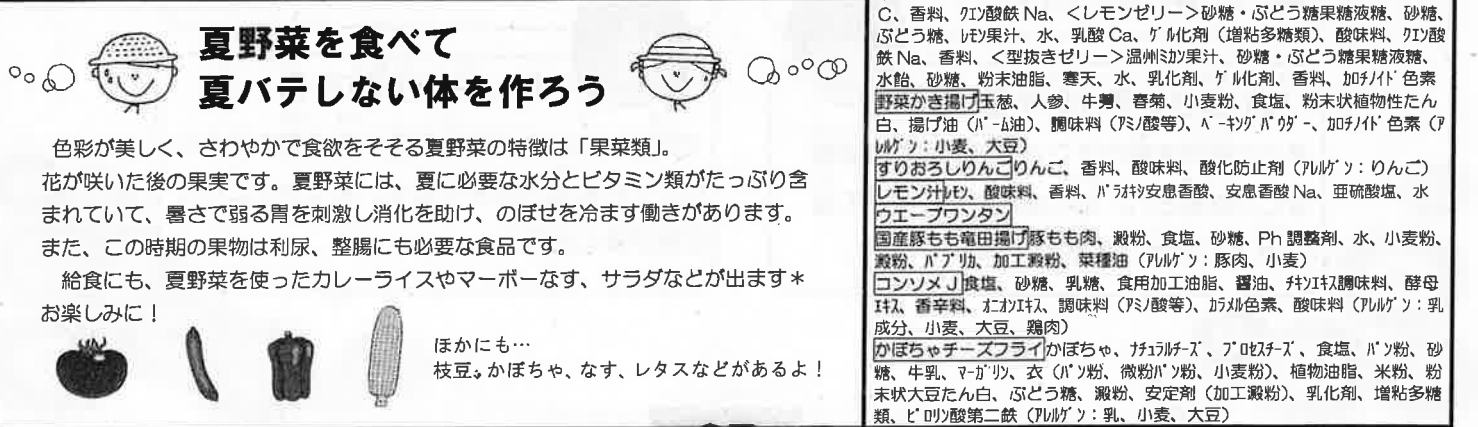 夏野菜を食べて
夏バテしない体を作ろう
色彩が美しく、さわやかで食欲をそそる夏野菜の特徴は「果菜類」。
花が咲いた後の果実です。夏野菜には、夏に必要な水分とビタミン類がたっぷり含
まれていて、暑さで弱る胃を刺激し消化を助け、のぼせを冷ます働きがあります。
また、この時期の果物は利尿、整腸にも必要な食品です。
給食にも、夏野菜を使ったカレーライスやマーボーなす、サラダなどが出ます*
お楽しみに!
ほかにも…
枝豆。かぼちゃ、なす、レタスなどがあるよ!
C、香料、クエン酸鉄Na、<レモンゼリー>砂糖・ぶどう糖果糖液糖、砂糖、
ぶどう糖、レモン果汁、水、乳酸Ca、ゲル化剤(増粘多糖類)、酸味料、クエン酸
鉄Na、香料、<型抜きゼリー>温州ミカン果汁、砂糖・ぶどう糖果糖液糖、
水飴、砂糖、粉末油脂、寒天、水、乳化剤、ゲル化剤、香料、カロチノイド色素
野菜かき揚げ玉葱、人参、牛蒡、春菊、小麦粉、食塩、粉末状植物性たん
白、揚げ油(パーム油)、調味料(アミノ酸等)、ベーキングパウダー、カロチノイド色素(ア
レルゲン:小麦、大豆)
すりおろしりんごりんご、香料、酸味料、酸化防止剤(アレルゲン:りんご)
レモン汁レモン、酸味料、香料、パラオキシ安息香酸、安息香酸Na、亜硫酸塩、水
ウエーブワンタン
国産豚もも竜田揚げ豚もも肉、澱粉、食塩、砂糖、Ph調整剤、水、小麦粉、
澱粉、パプリカ、加工澱粉、菜種油(アレルゲン:豚肉、小麦)
コンソメJ食塩、砂糖、乳糖、食用加工油脂、醤油、チキンエキス調味料、酵母
エキス、香辛料、オニオンエキス、調味料(アミノ酸等)、カラメル色素、酸味料(アレルゲン:乳
成分、小麦、大豆、鶏肉)
かぼちゃチーズフライかぼちゃ、ナチュラルチーズ、プロセスチーズ、食塩、パン粉、砂
糖、牛乳、マーガリン、衣(パン粉、微粉パン粉、小麦粉)、植物油脂、米粉、粉
末状大豆たん白、ぶどう糖、澱粉、安定剤(加工澱粉)、乳化剤、増粘多糖
類、ピロリン酸第二鉄(アレルゲン:乳、小麦、大豆)